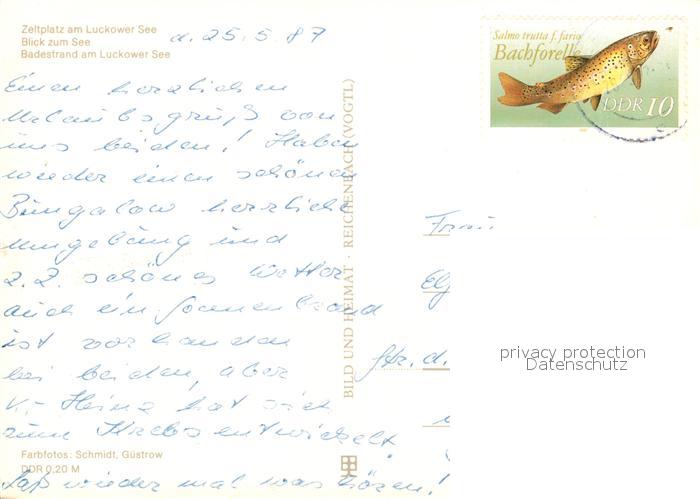 Zeltplatz am Luckower See
Blick zum See
Badestrand am Luckower See
d. 25. 5. 87
Salmo trutta f. fario
Bachforelle
DDR 10
Einen herzlichen
Urlaubsgruß von
uns beiden! Haben
wieder einen schönen
Bungalow herrliche
Umgebung und
z. Z. schönes Wetter
auch ein Sonnenbrand
ist vorhanden
bei beiden, aber
K.-Heinz hat sich
zum Krebs entwickelt
Laß wieder mal was hören!
BILD UND HEIMAT · REICHENBACH (VOGTL)
Frau
Str. d.
privacy protection
Datenschutz
Farbfotos: Schmidt, Güstrow
DDR 0,20 M